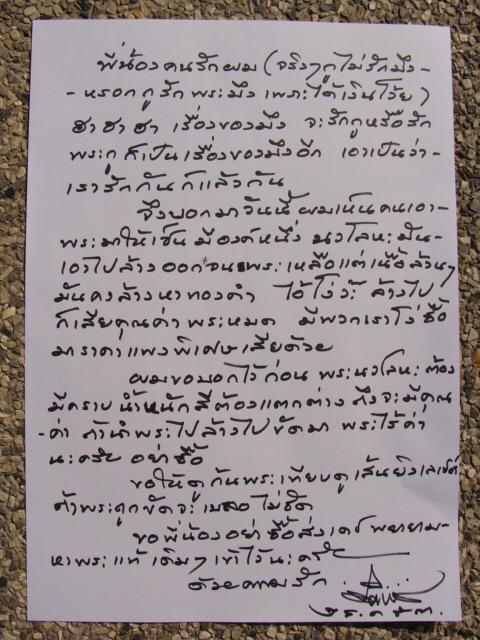 พี่น้องคนรักผม (จริงๆกูไม่รักมึง-
-หรอกกูรักพระมึง เพราะได้เงินโว้ย)
ฮา ฮา ฮา เรื่องของมึง จะรักกูหรือรัก
พระกู ก็เป็นเรื่องของมึงอีก เอาเป็นว่า-
เรารักกันก็แล้วกัน
จึงบอกมาวันนี้ ผมเห็นคนเอา-
พระมาให้เช่น มีองค์หนึ่ง นวโลหะ มัน-
เอาไปล้างออกจนพระเหลือแต่เนื้อล้วนๆ
มันคงล้างหาทองคำ ไอ้โง่ว่ะ ล้างไป
ก็เสียคุณค่าพระหมด มีพวกเราโง่ซื้อ
มาราคาแพงพิเศษเสียด้วย
ผมขอบอกไว้ก่อน พระนวโลหะต้อง
มีคราบน้ำหนักสีต้องแตกต่าง ถึงจะมีคุณ
-ค่า ถ้านำพระไปล้างไปขัดมา พระไร้ค่า
นะครับ อย่าซื้อ
ขอให้ดูก้นพระเทียบดูเส้นยิงเลเซอร์
ถ้าพระถูกขัดจะเบลอไม่ชัด
ขอพี่น้องอย่าซื้อสั่งเดช พยายาม-
หาพระแท้เดิมๆเข้าไว้นะครับ
ด้วยความรัก